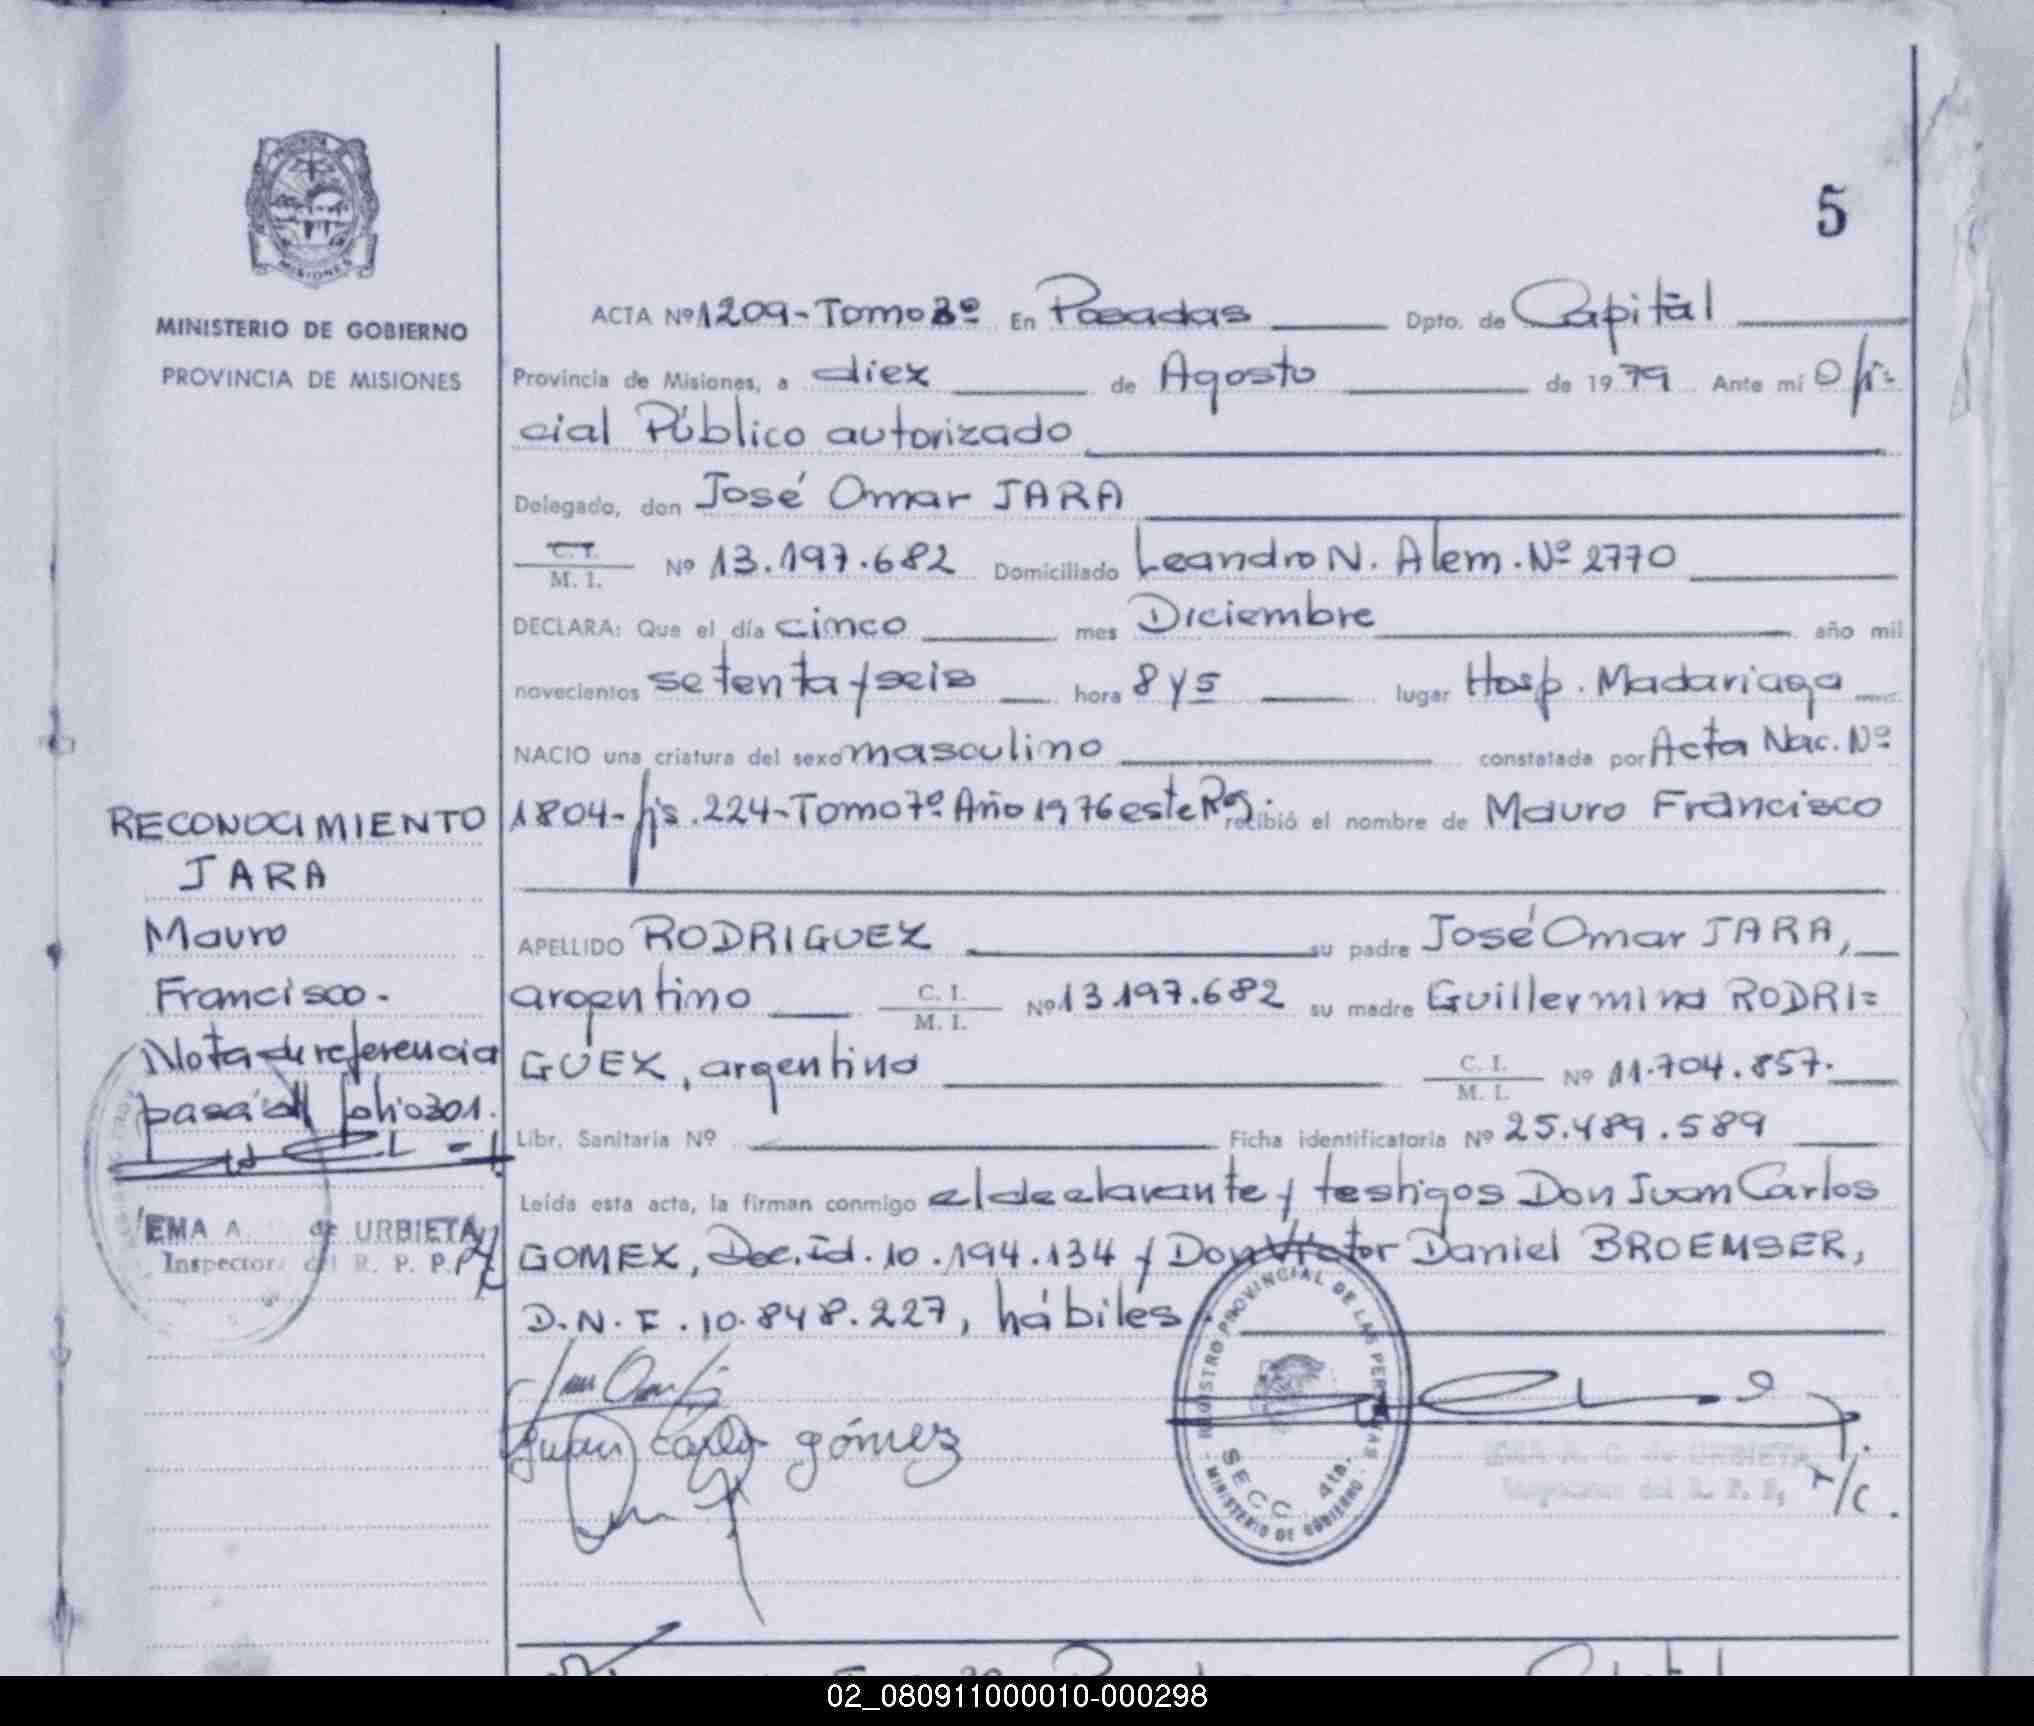 5
MISIONES
MINISTERIO DE GOBIERNO
PROVINCIA DE MISIONES
ACTA Nº 1209-Tomo 3º En Posadas Dpto. de Capital
Provincia de Misiones, a diez de Agosto de 1979 Ante mi Ofi-
cial Público autorizado
Delegado, don José Omar JARA
C.I. / M. I. Nº 13.197.682 Domiciliado Leandro N. Alem. Nº 2770
DECLARA: Que el día cinco mes Diciembre año mil
novecientos setenta y seis hora 8 y 5 lugar Hosp. Madariaga
NACIO una criatura del sexo masculino constatada por Acta Nac. Nº
1804-fjs. 224-Tomo 7º Año 1976 este Reg. recibió el nombre de Mauro Francisco
APELLIDO RODRIGUEZ su padre José Omar JARA,
argentino C. I. / M. I. Nº 13197.682 su madre Guillermina RODRI=
GUEZ, argentino C. I. / M. I. Nº 11.704.857.
Libr. Sanitaria Nº Ficha identificatoria Nº 25.489.589
Leída esta acta, la firman conmigo el declarante y testigos Don Juan Carlos
GOMEZ, Doc. Id. 10.194.134 y Don Victor Daniel BROEMSER,
D.N.I. 10.848.227, hábiles
RECONOCIMIENTO
JARA
Mauro
Francisco.
Nota de referencia
pasa al folio 301.
EMA A. de URBIETA
Inspectora del R. P. P.
Juan Carlos gómez
REGISTRO PROVINCIAL DE LAS PERSONAS
SECC. 4ta.
MINISTERIO DE GOBIERNO
EMA A. C. de URBIETA
Inspectora del R. P. P.
02_080911000010-000298